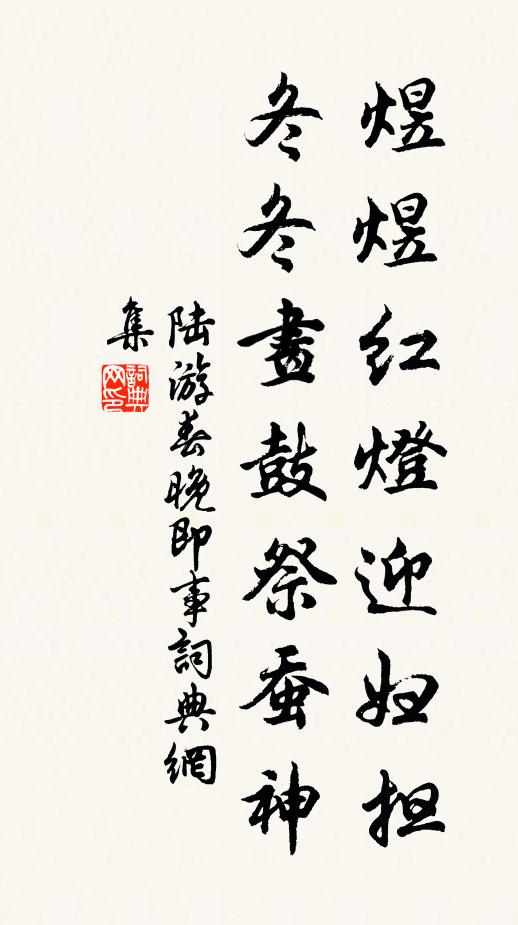 煜煜红燈迎妇担
冬冬畫鼓祭蚕神
陆游春晚即事詞典網
集
詞典网印